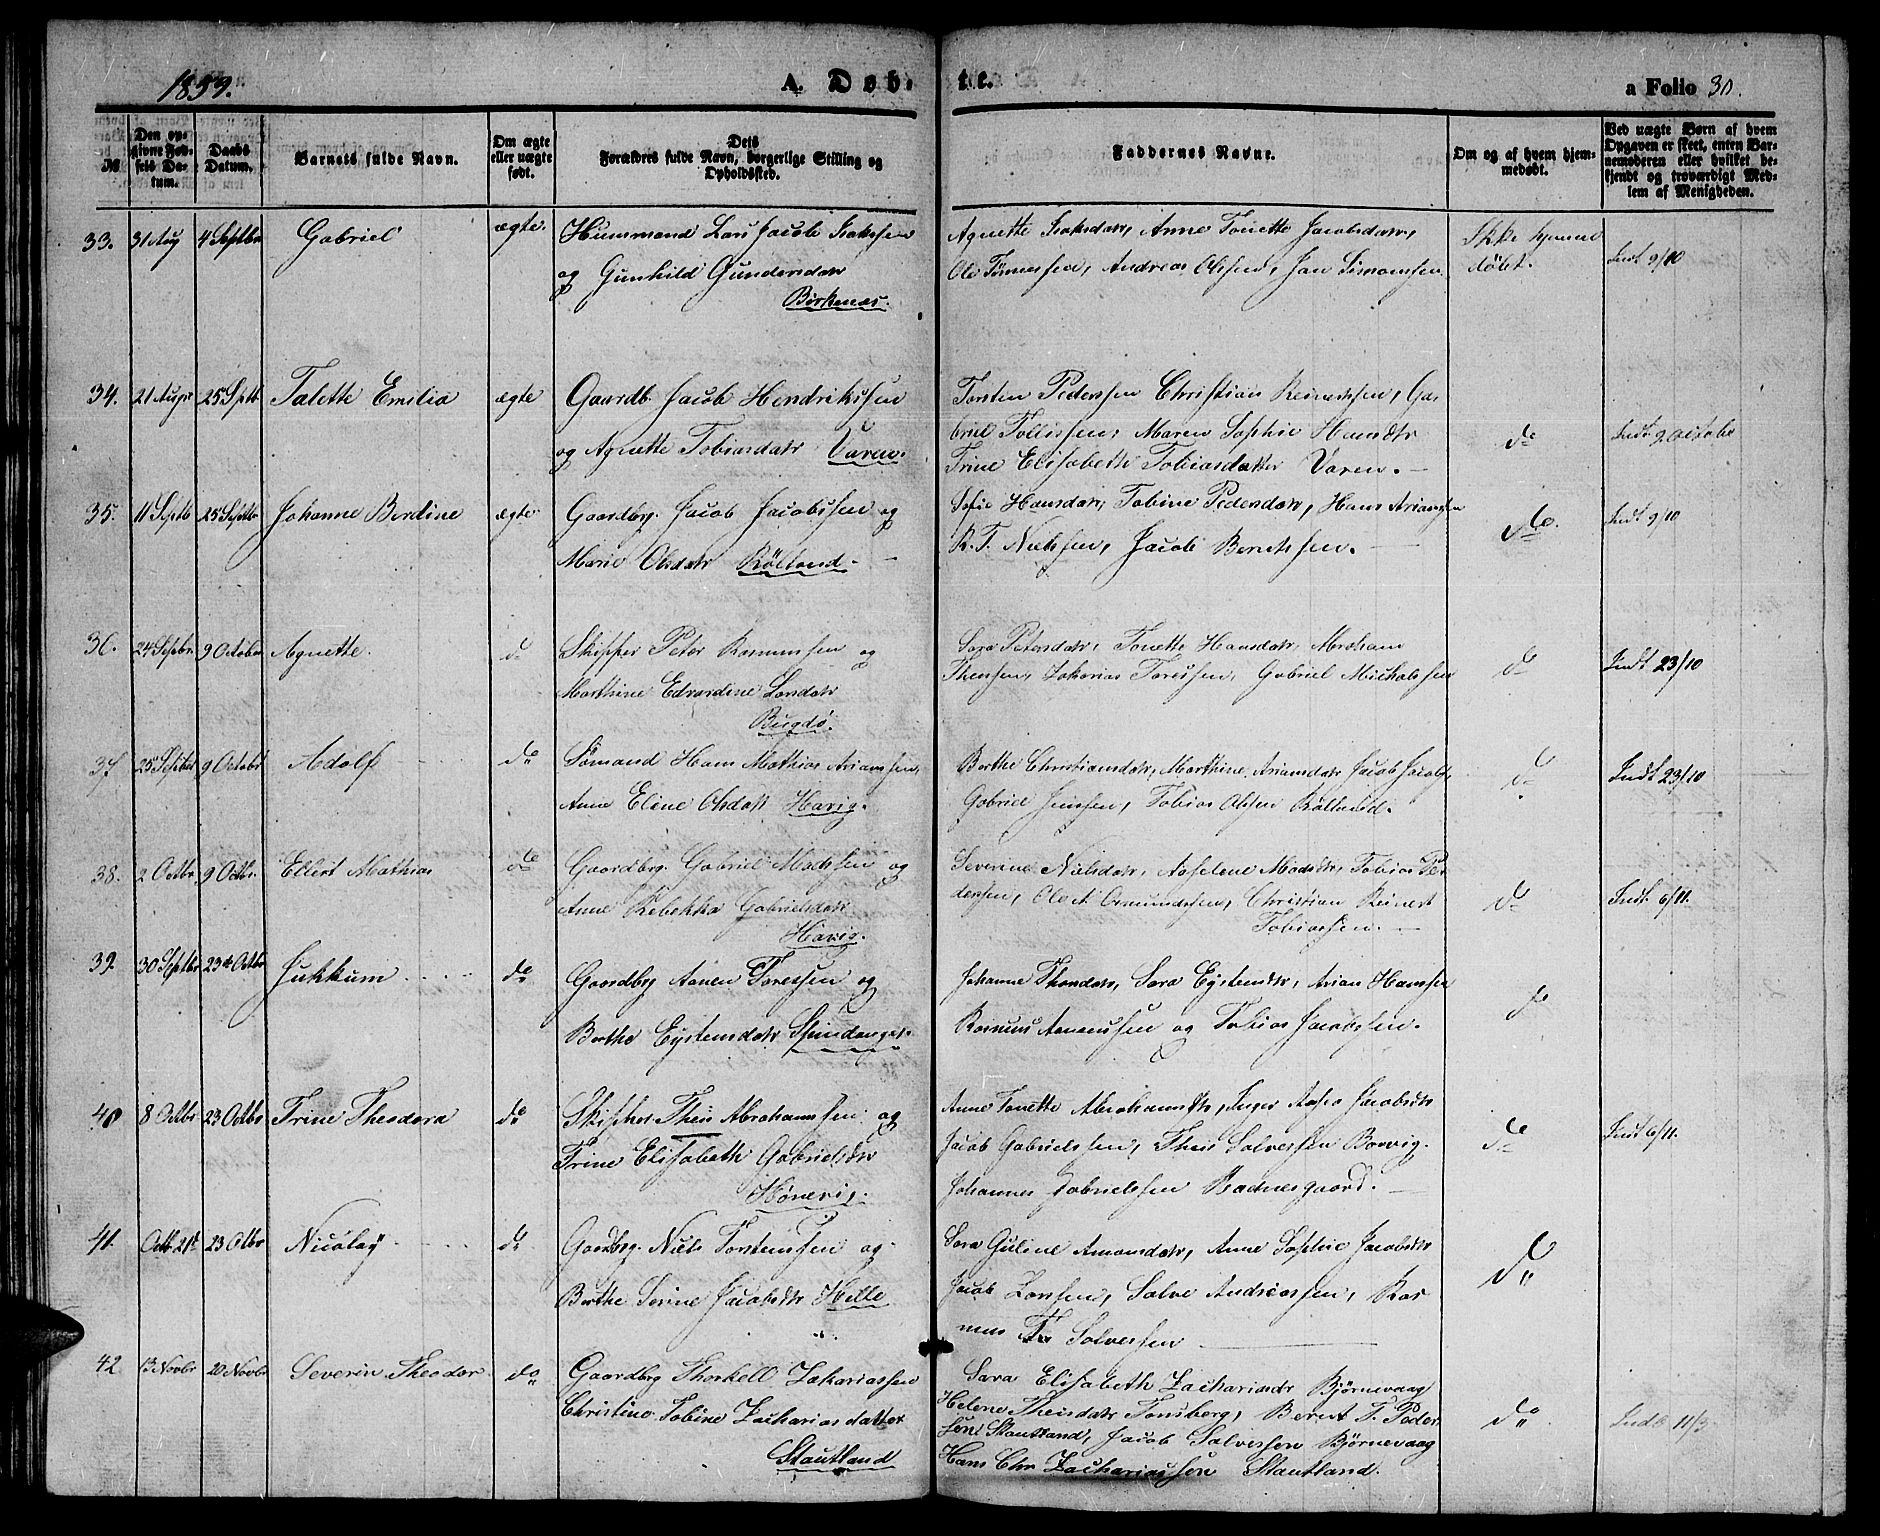 1859.
A. Døb-
te.
a Folio 30.
№
Den opgivne Fødsels Datum.
Daabs Datum.
Barnets fulde Navn.
Om ægte eller uægte født.
Dets Forældres fulde Navn, borgerlige Stilling og Opholdsted.
Faddernes Navne.
Om og af hvem hjemmedøbt.
Ved uægte Børn af hvem Opgaven er skeet, enten Barnemoderen eller hvilket bekjendt og troværdigt Medlem af Menigheden.
33. 31 Aug 4 Septbr Gabriel ægte. Huusmand Lars Jacob Isaksen
og Gunhild Gundersdatr
Birkenæs.
Agnette Isaksdatr, Anne Tonette Jacobsdatr,
Ole Tønnessen, Andreas Olsen, Jan Simonsen
Ikke hjemme
døbt.
Indt 9/10
34. 21 Augs 25 Sptb Talette Emilia ægte Gaardb. Jacob Hendrikssen
og Agnette Tobiasdatr Varen.
Torsten Pederssen Christian Reinertssen, Ga-
briel Tollissen, Maren Sophie Hansdtr
Trine Elisabeth Tobiasdatter Varen.
do
Indt 9 Octobr
35. 11 Septb 25 Septbr Johanne Berdine ægte Gaardbrg. Jacob Jacobssen og
Marie Olsdatr Røllend.
Sofie Hansdatr, Tobine Pedersdatr, Hans Arianssen
R. T. Nielssen, Jacob Berntssen.
do.
Indt 9/10
36. 24 Sepbr. 9 October Agnette. do Skipper Peter Rasmussen og
Marthine Edvardine Larsdatr
Bugdø.
Sara Petersdatr, Tonette Hansdatr, Abraham
Zakarias Toressen, Gabriel Michalssen
do
Indt 23/10
37 25 Septbr 9 Octobr Adolf do Sømand Hans Mathias Arianssen,
Anne Eline Olsdatr Havig.
Berthe Christiansdatr, Marthine Ariansdatr Jacob Jacobs,
Gabriel Jenssen, Tobias Olsen Røllend.
do
Indt 23/10
38. 2 Octbr. 9 Octbr. Ellert Mathias do Gaardbrg. Gabriel Madssen og
Anne Rebekka Gabrielsdatr
Havig.
Severine Nielsdatr, Aaselene Madsdtr, Tobias Pe-
derssen, Ole A Osmundssen, Christian Reinert
Tobiassen.
do
Indt. 6/11.
39. 30 Septbr 23de Octbr Jukkum do Gaardbrg Aanen Toressen og
Berthe Eystensdatr Spindanget.
Johanne Thorsdatr, Sara Eystensdtr, Arian Hanssen
Rasmus Aanenssen og Tobias Jacobssen.
do
40 8 Octbr 23 Octbr Trine Theodora do Skipher Theis Abrahamssen og
Trine Elisabeth Gabrielsdtr
Hønevig.
Anne Tonette Abrahamsdtr, Inger Aasea Jacobsdtr
Jacob Gabrielssen, Theis Salvessen Borvig.
Johannes Gabrielssen Rødnesgaard.
do
Indt 6/11.
41. Octb 21t 23 Otbr Nicolay do Gaardbrg. Niels Torstenssen og
Berthe Serine Jacobsdtr Helle
Sara Guline Amonsdatr, Anne Sophie Jacobsdtr
Jacob Larssen, Salve Andreassen, Ras
mus Tr Salvessen
do
42 13 Novbr 20 Novbr Severin Theodor do Gaardbrg Thorkell Zakariassen
Christine Tobine Zachariasdatter
Skautland
Sara Elisabeth Zachariasdr Bjørnevaag
Helene Theisdatr Tonsberg, Berent T. Peder
sen Skautland, Jacob Salvessen Bjørnevaag
Hans Chr Zachariassen Stautland.
do
Indt 11/3